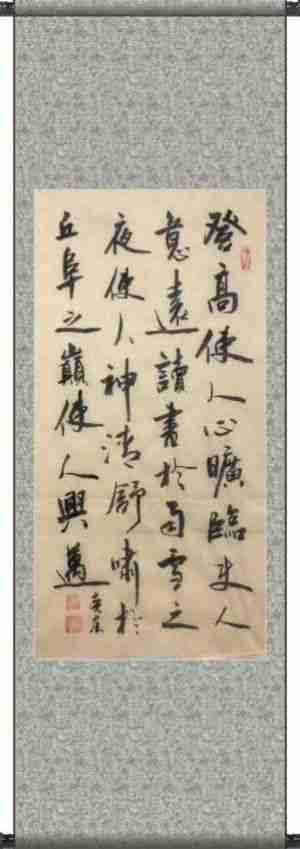 登高使人心曠臨人
意遠讀書於雨雪之
夜使人神清舒嘯於
丘阜之巔使人興邁